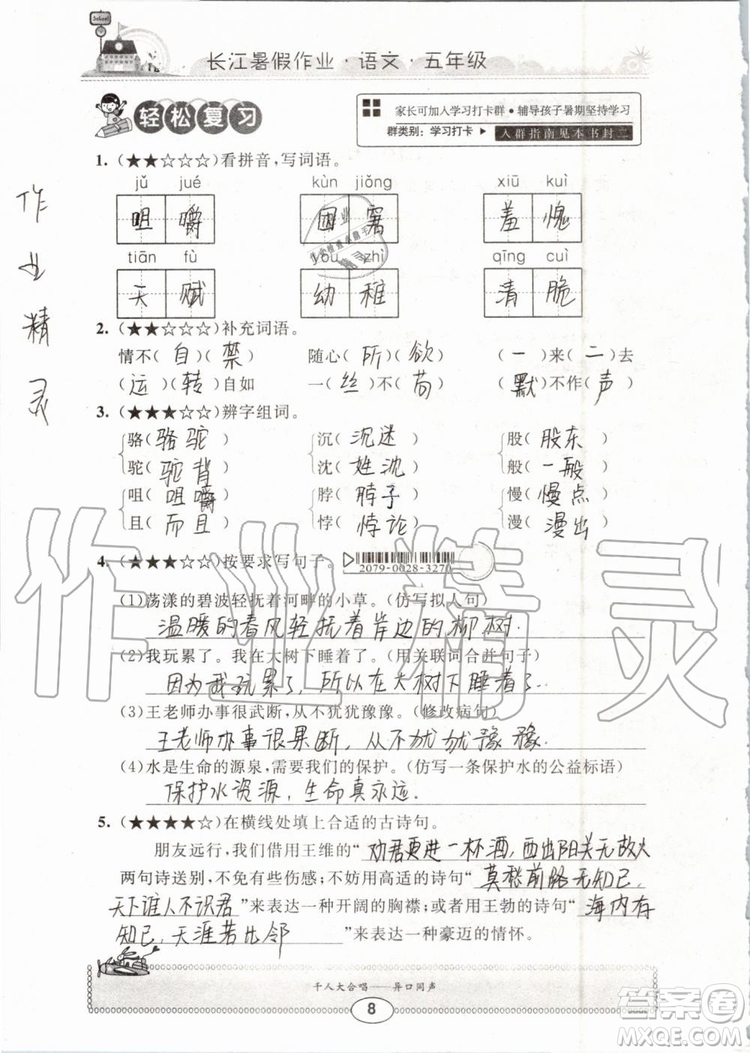 School
长江暑假作业·语文·五年级
轻松复习
家长可加入学习打卡群·辅导孩子暑期坚持学习
群类别：学习打卡 ▶ 人群指南见本书封二
1.（★★☆☆☆）看拼音，写词语。
jǔ jué kùn jiǒng xiū kuì
咀 嚼 困 窘 羞 愧
tiān fù yòu zhì qīng cuì
天 赋 幼 稚 清 脆
2.（★★☆☆☆）补充词语。
情不（自）（禁） 随心（所）（欲） （一）来（二）去
（运）（转）自如 一（丝）不（苟） （默）不作（声）
3.（★★★☆☆）辨字组词。
骆（骆驼） 沉（沉迷） 股（股东）
驼（驼背） 沈（姓沈） 般（一般）
咀（咀嚼） 脖（脖子） 慢（慢点）
且（而且） 悖（悖论） 漫（漫出）
4.（★★★☆☆）按要求写句子。
2079-0028-3270
(1)荡漾的碧波轻抚着河畔的小草。（仿写拟人句）
温暖的春风轻抚着岸边的柳树.
(2)我玩累了。我在大树下睡着了。（用关联词合并句子）
因为我玩累了，所以在大树下睡着了.
(3)王老师办事很武断，从不犹犹豫豫。（修改病句）
王老师办事很果断，从不犹犹豫豫.
(4)水是生命的源泉，需要我们的保护。（仿写一条保护水的公益标语）
保护水资源，生命真永远.
5.（★★★★☆）在横线处填上合适的古诗句。
朋友远行，我们借用王维的“劝君更进一杯酒，西出阳关无故人
两句诗送别，不免有些伤感；不妨用高适的诗句“莫愁前路无知己，
天下谁人不识君”来表达一种开阔的胸襟；或者用王勃的诗句“海内存
知己，天涯若比邻”来表达一种豪迈的情怀。
千人大合唱——异口同声
8
作业精灵
作业精灵
答案圈
MXQE.COM